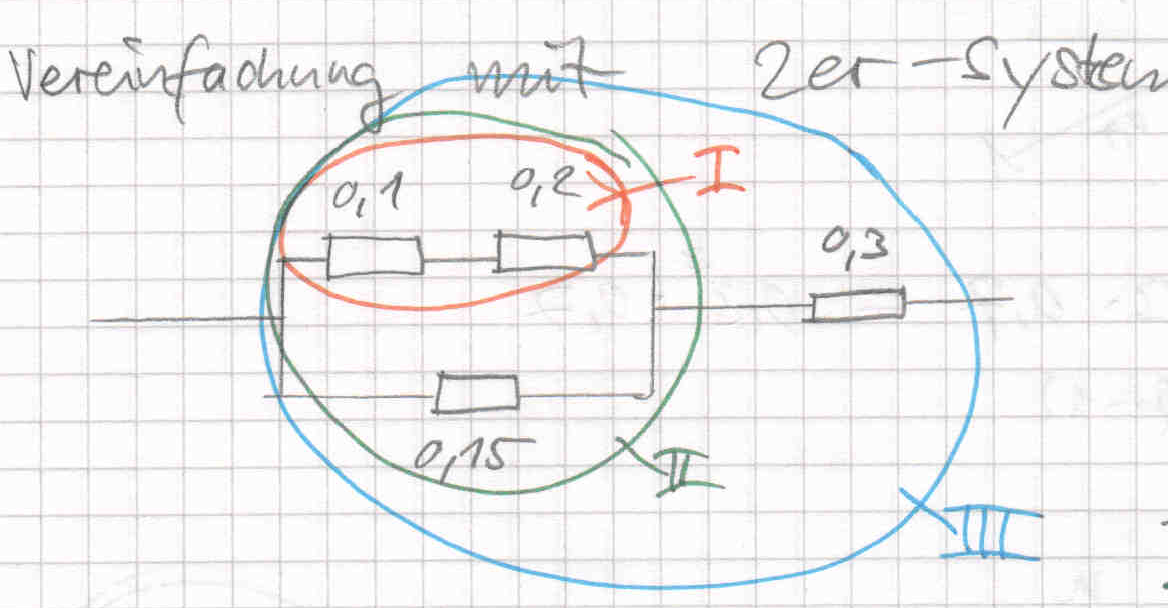 Vereinfachung mit 2er-System
I
0,1
0,2
0,3
0,15
II
III